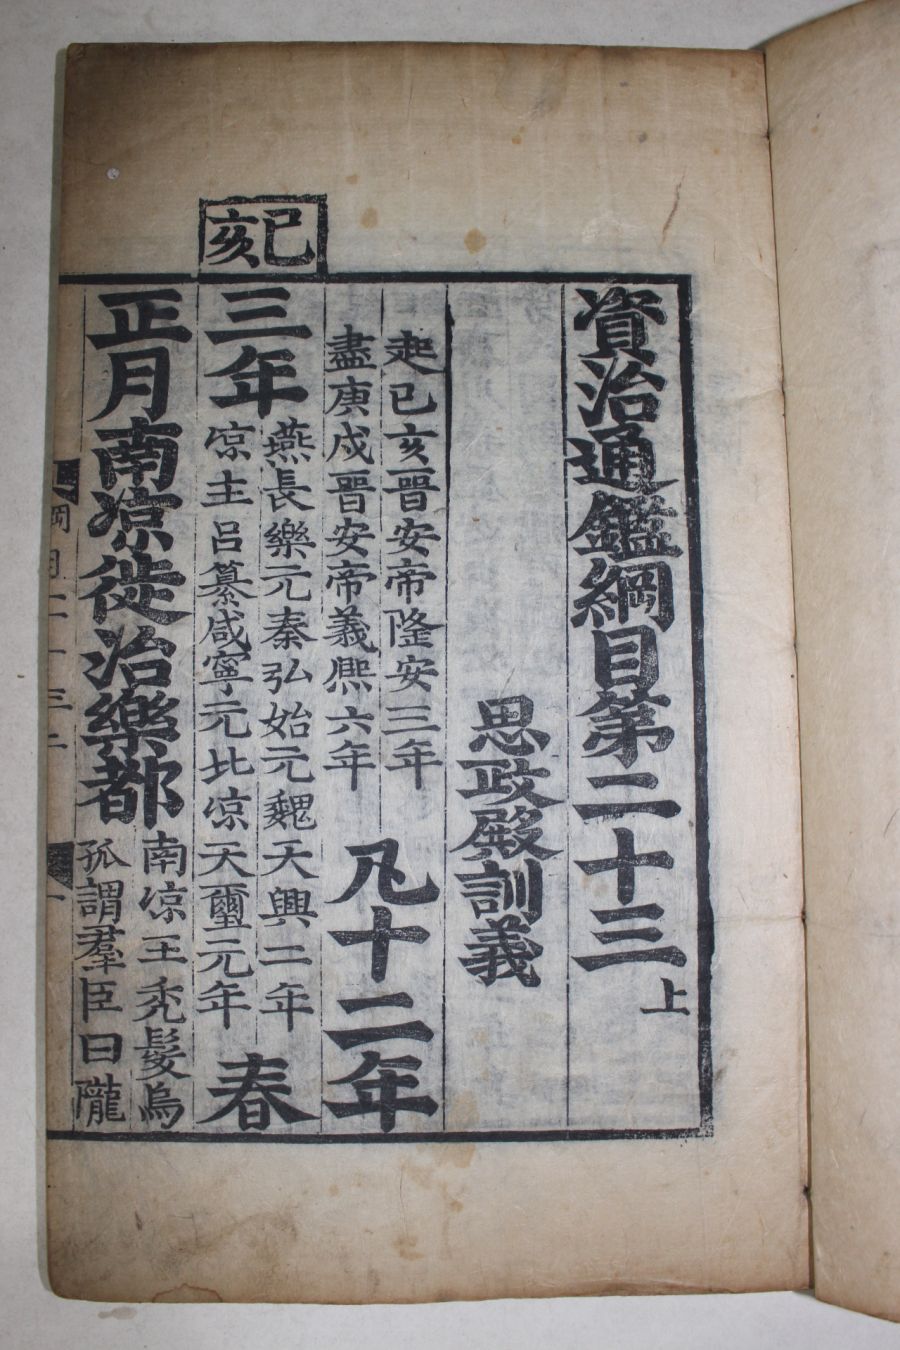 資治通鑑綱目第二十三上
思政殿訓義
起己亥晋安帝隆安三年
盡庚戌晋安帝義熙六年
凡十二年
己亥
三年
燕長樂元秦弘始元魏天興二年
涼主呂纂咸寧元北涼天璽元年
春
正月南涼徙治樂都
南涼王禿髮烏
孤謂羣臣曰隴
綱目二十三上
一